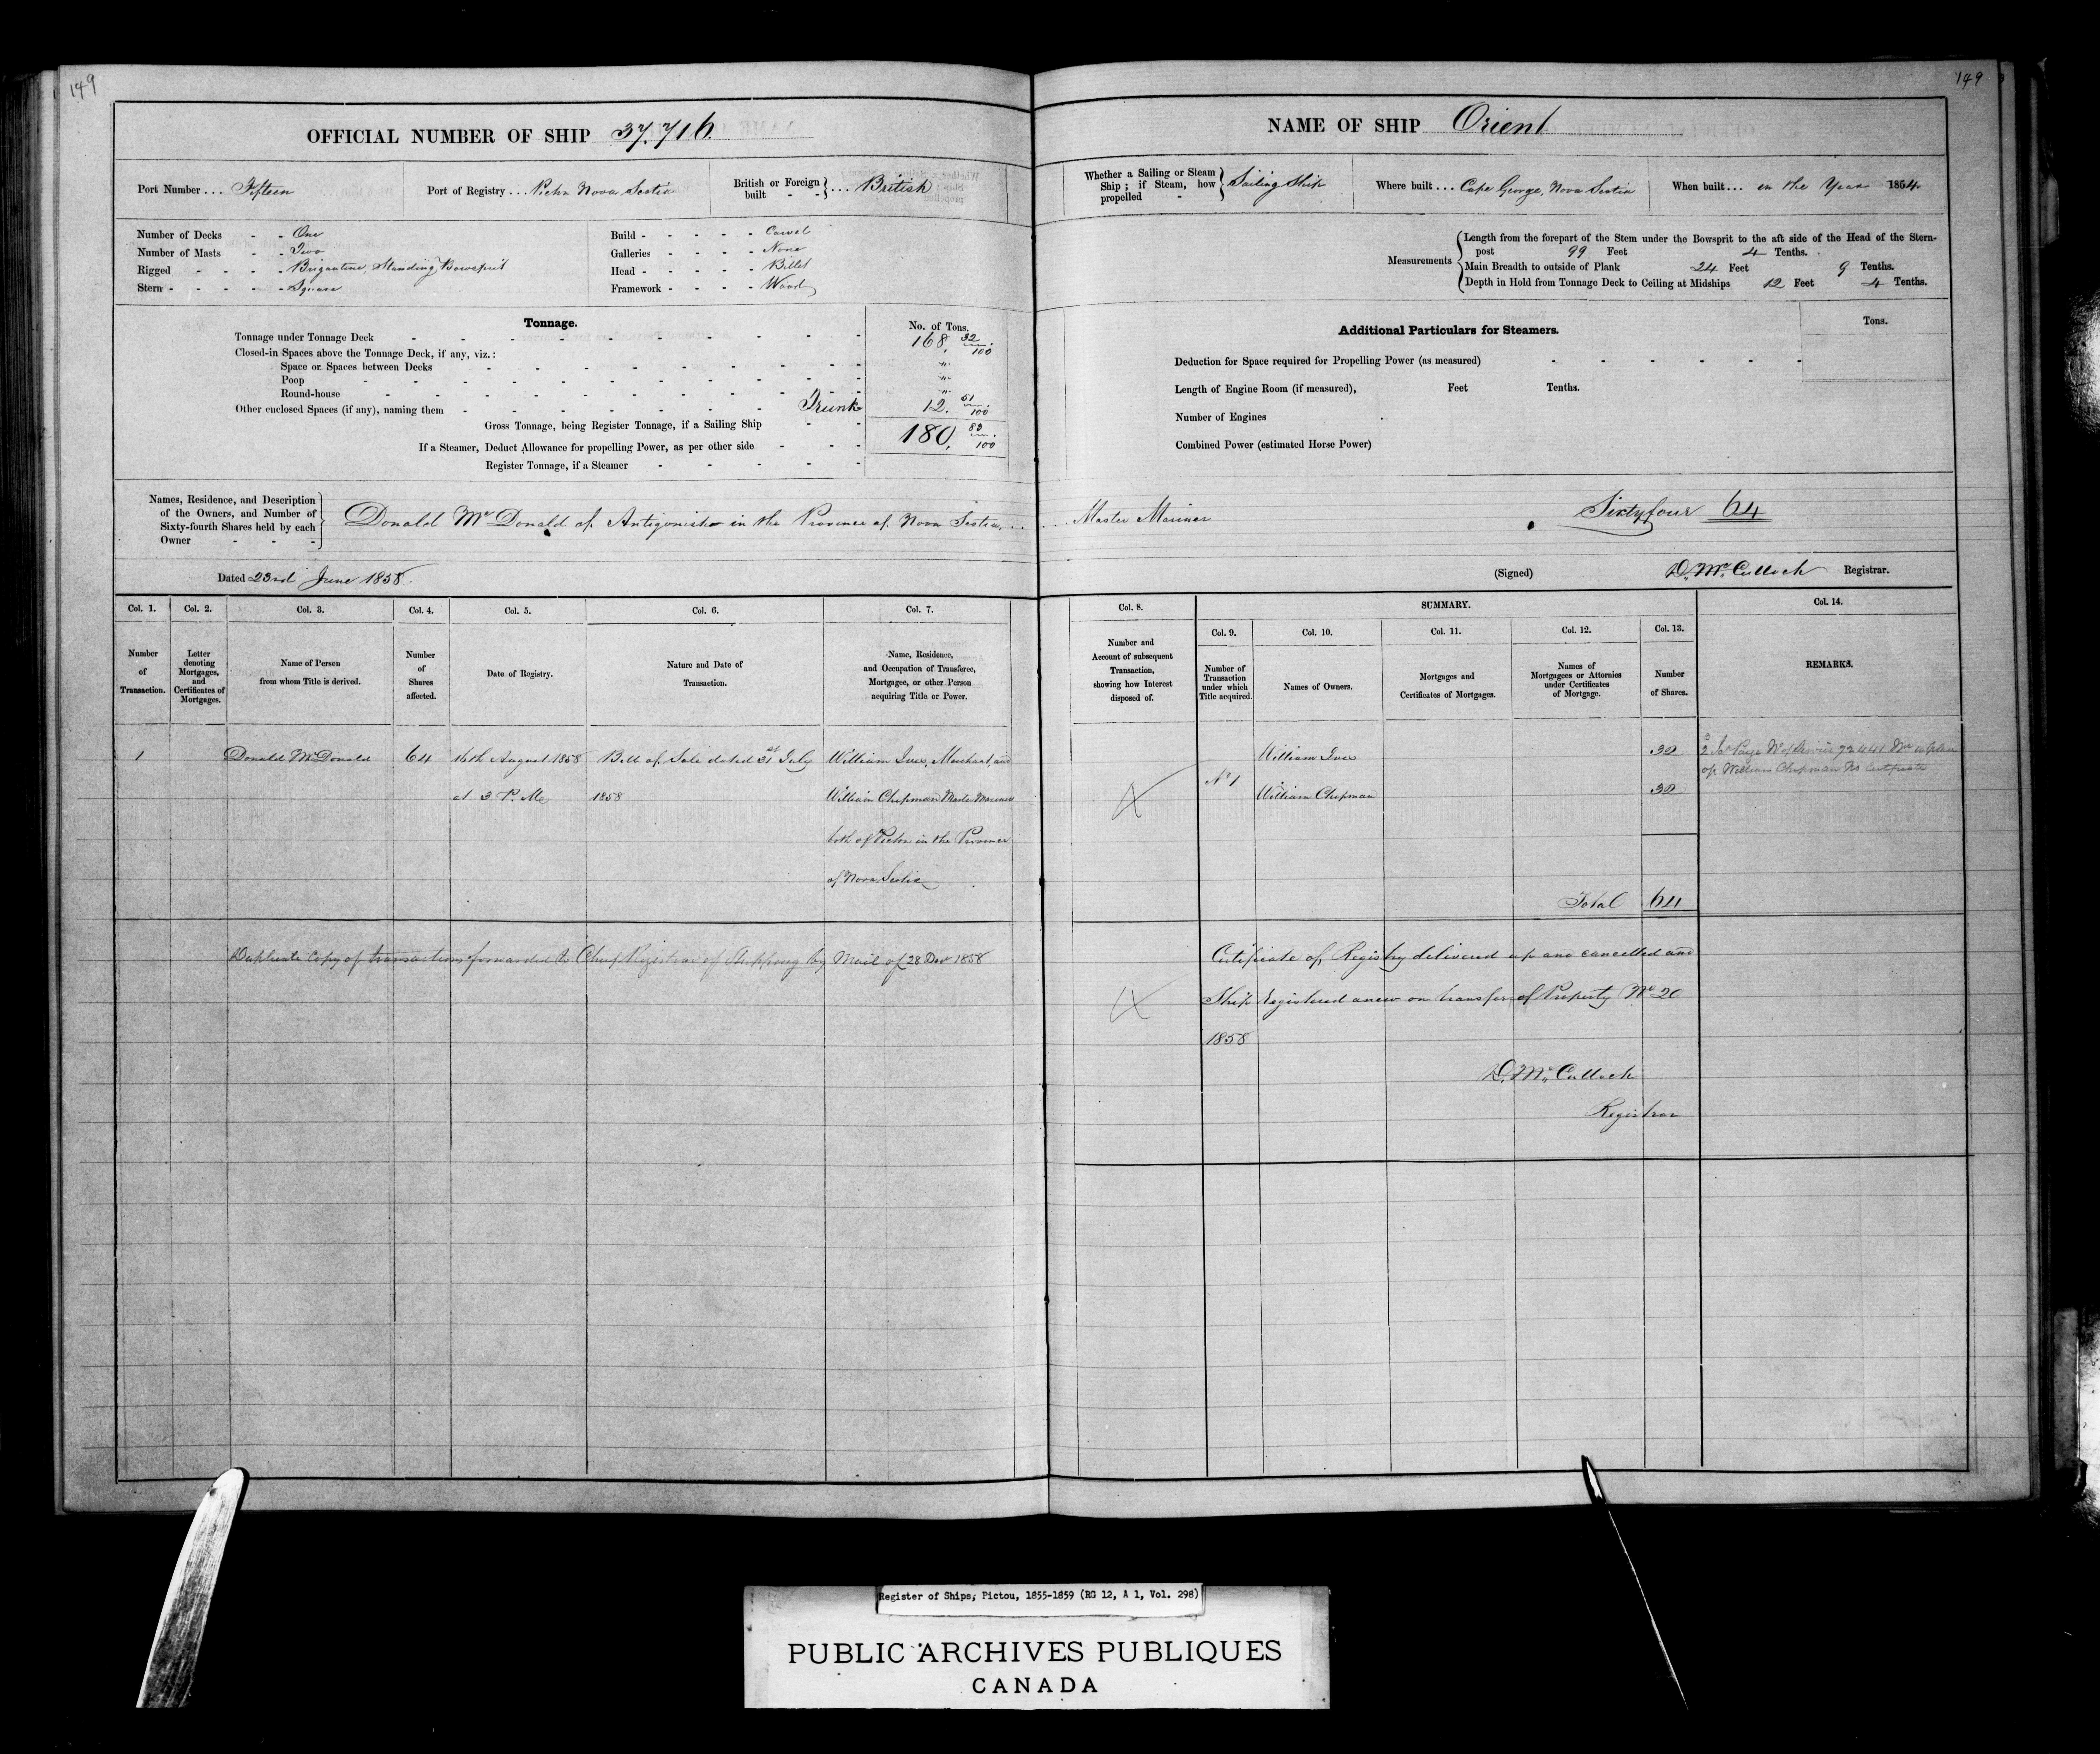 149
OFFICIAL NUMBER OF SHIP 37,716.
Port Number ... Fifteen
Port of Registry ... Pictou Nova Scotia
British or Foreign built - - } ... British
Number of Decks - - One
Number of Masts - - Two
Rigged - - - - Brigantine, Standing Bowsprit
Stern - - - - - Square
Build - - - - - Carvel
Galleries - - - - None
Head - - - - - Billet
Framework - - - - Wood
Tonnage.
No. of Tons.
Tonnage under Tonnage Deck 168, 32/100
Closed-in Spaces above the Tonnage Deck, if any, viz.:
Space or Spaces between Decks "
Poop "
Round-house "
Other enclosed Spaces (if any), naming them Trunk 12, 51/100
Gross Tonnage, being Register Tonnage, if a Sailing Ship 180, 83/100
If a Steamer, Deduct Allowance for propelling Power, as per other side
Register Tonnage, if a Steamer
Names, Residence, and Description of the Owners, and Number of Sixty-fourth Shares held by each Owner - - -
Donald McDonald of Antigonish in the Province of Nova Scotia,...
Dated 23rd June 1858.
Col. 1. Number of Transaction.
Col. 2. Letter denoting Mortgages, and Certificates of Mortgages.
Col. 3. Name of Person from whom Title is derived.
Col. 4. Number of Shares affected.
Col. 5. Date of Registry.
Col. 6. Nature and Date of Transaction.
Col. 7. Name, Residence, and Occupation of Transferee, Mortgagee, or other Person acquiring Title or Power.
1 Donald McDonald 64 16th August 1858 Bill of Sale dated 31st July William Ives, Merchant and
at 3 P. M. 1858 William Chipman Master Mariner
both of Pictou in the Province
of Nova Scotia
Duplicate Copy of transactions forwarded to Chief Registrar of Shipping by Mail of 28 Decr 1858
149
NAME OF SHIP Orient
Whether a Sailing or Steam Ship; if Steam, how propelled - } Sailing Ship
Where built ... Cape George, Nova Scotia
When built ... in the Year 1854
Measurements
Length from the forepart of the Stem under the Bowsprit to the aft side of the Head of the Stern-
post 99 Feet 4 Tenths.
Main Breadth to outside of Plank 24 Feet 9 Tenths.
Depth in Hold from Tonnage Deck to Ceiling at Midships 12 Feet 4 Tenths.
Additional Particulars for Steamers.
Tons.
Deduction for Space required for Propelling Power (as measured)
Length of Engine Room (if measured), Feet Tenths.
Number of Engines
Combined Power (estimated Horse Power)
... Master Mariner Sixtyfour 64
(Signed) D. McCulloch Registrar.
Col. 8. Number and Account of subsequent Transaction, showing how Interest disposed of.
SUMMARY.
Col. 9. Number of Transaction under which Title acquired.
Col. 10. Names of Owners.
Col. 11. Mortgages and Certificates of Mortgages.
Col. 12. Names of Mortgagees or Attornies under Certificates of Mortgage.
Col. 13. Number of Shares.
Col. 14. REMARKS.
X No 1 William Ives 32
William Chipman 32
of William Chipman No Certificate
Total 64
X Certificate of Registry delivered up and cancelled and
Ship registered anew on transfer of Property No 20
1858
D. McCulloch
Registrar
Register of Ships, Pictou, 1855-1859 (RG 12, A 1, Vol. 298)
PUBLIC ARCHIVES PUBLIQUES
CANADA